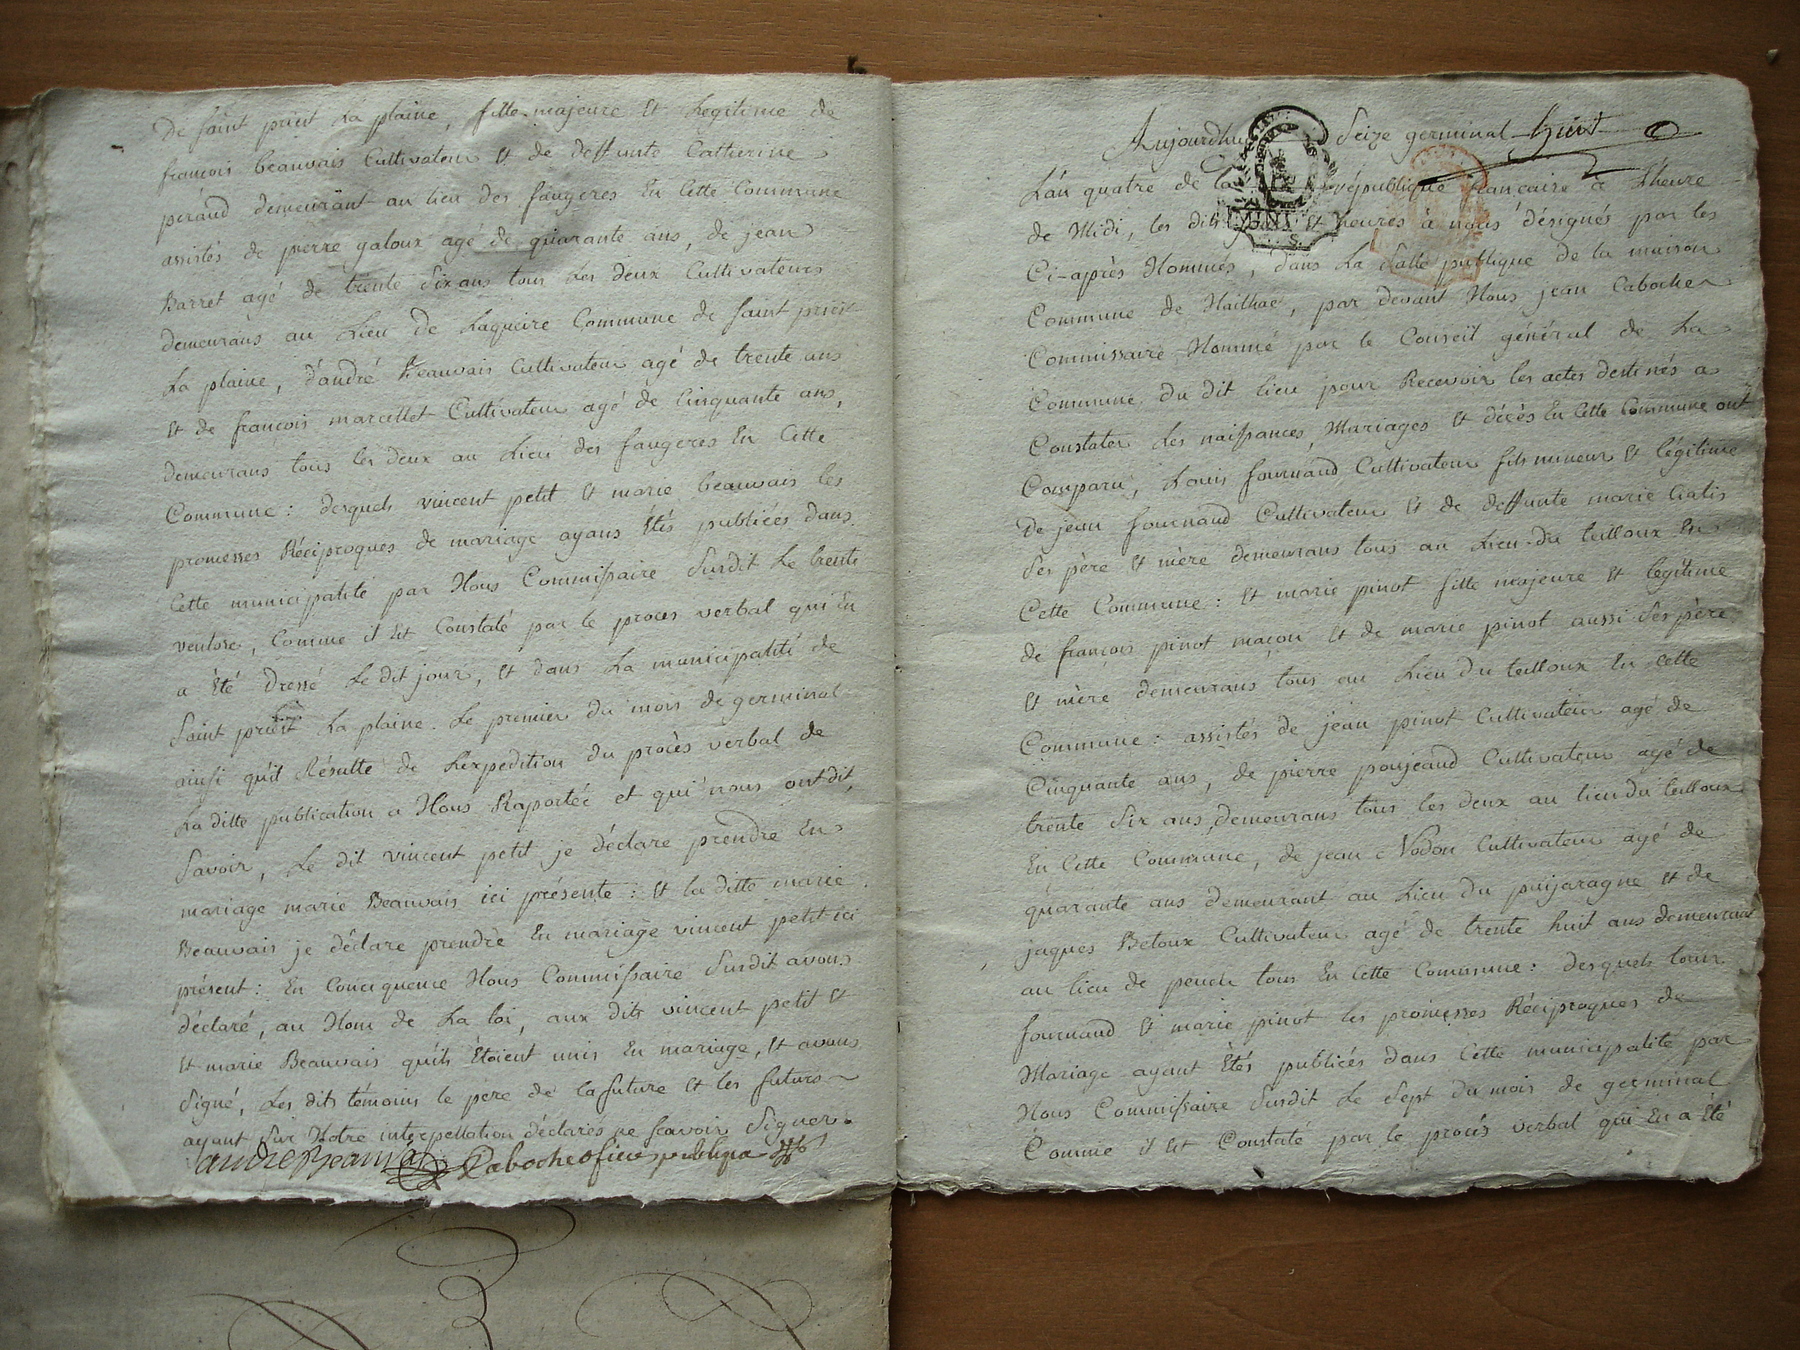 De saint priest la plaine, fille majeure et legitime de
francois beauvais Cultivateur et de deffunte Catherine
peraud demeurant au lieu des faugeres En Cette Commune
assistés de pierre galoux agé de quarante ans, de jean
Barret agé de trente six ans tous les deux Cultivateurs
demeurans au Lieu de Laqueire Commune de saint priest
La plaine, d'andré Beauvais Cultivateur agé de trente ans
Et de francois marcellot Cultivateur agé de Cinquante ans,
demeurans tous les deux au Lieu des faugeres En Cette
Commune : desquels vincent petit Et marie beauvais les
promesses Réciproques de mariage ayans Etés publiées dans
Cette municipalité par Nous Commissaire Susdit Le trente
ventose, Comme il Est Constaté par le proces verbal qui En
a Eté Dressé Le dit jour, Et dans La municipalité de
Saint priest La plaine. Le premier du mois de germinal
ainsi qu'il Résulte de L'expedition du procès verbal de
La ditte publication a Nous Raportée et qui nous ont dit,
Savoir, Le dit vincent petit je déclare prendre En
mariage marie Beauvais ici présente : Et la ditte marie
Beauvais je déclare prendre En mariage vincent petit ici
présent : En Concequence Nous Commissaire Susdit avons
déclaré, au Nom de La loi, aux dits vincent petit Et
Et marie Beauvais qu'ils Etoient unis En mariage, Et avons
Signé, Les dits témoins le père de la future Et les futurs
ayant Sur Notre interpellation déclarés ne scavoir Signer.
andre Beauvais Caboche oficier publique
Aujourdhui Seize germinal
L'an quatre de la république francaise à L'heure
de Midi, les dits jours Et heures à nous désignés par les
Ci-après Nommés, dans La Salle publique de la maison
Commune de Nailhac, par devant Nous jean Caboche
Commissaire Nommé par le Conseil général de La
Commune du dit lieu pour Recevoir les actes destinés a
Constater Les naissances, Mariages Et décès En Cette Commune ont
Comparu, Louis fournaud Cultivateur fils mineur Et légitime
De jean fournaud Cultivateur Et de deffunte marie
Ses père Et mère demeurans tous au Lieu du teilloux En
Cette Commune : Et marie pinot fille majeure Et legitime
de francois pinot macon Et de marie pinot aussi Ses père
Et mère demeurans tous au Lieu du teilloux En Cette
Commune : assistés de jean pinot Cultivateur agé de
Cinquante ans, de pierre poujeaud Cultivateur agé de
trente Six ans, demeurans tous les deux au lieu du teilloux
En Cette Commune, de jean Nodon Cultivateur agé de
quarante ans demeurant au Lieu du puijaragne Et de
jaques Betoux Cultivateur agé de trente huit ans demeurant
au lieu de peuch tous En Cette Commune : desquels Louis
fournaud Et marie pinot les promesses Réciproques de
Mariage ayant Etés publiés dans Cette municipalité par
Nous Commissaire Susdit Le Sept du mois de germinal
Comme il Est Constaté par le procès verbal qui En a Eté